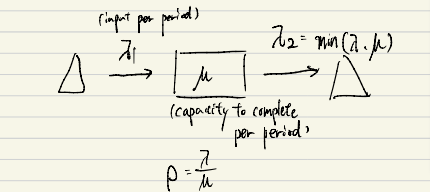 (input per period)
λ1
λ2 = min(λ, μ)
μ
(capacity to complete
per period)
ρ = λ/μ